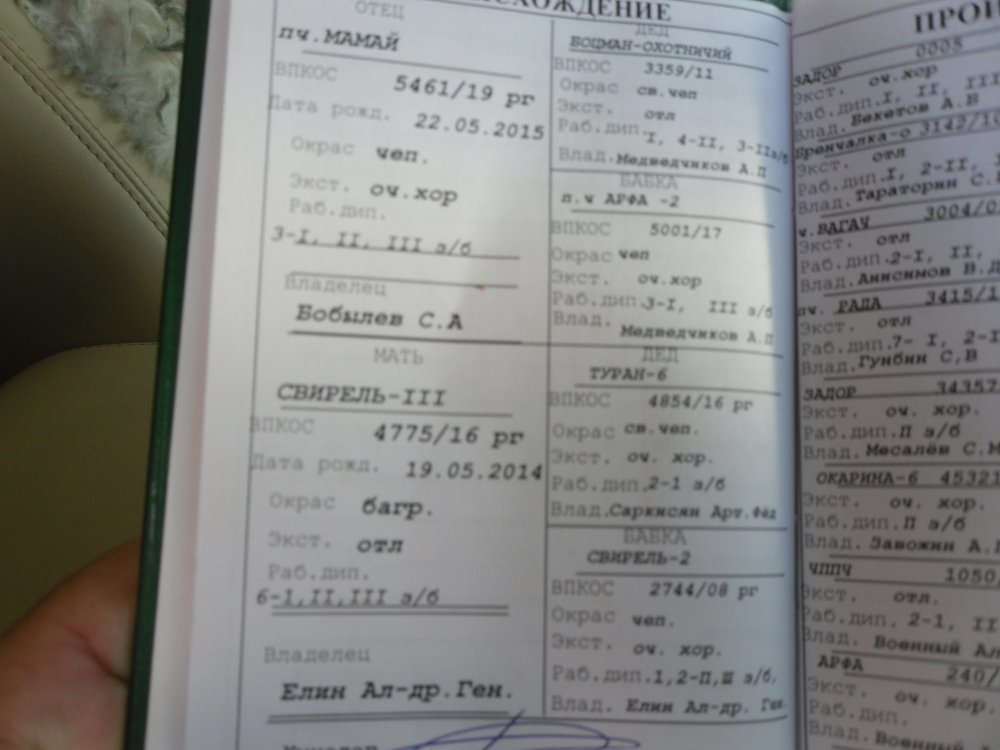 ОТЕЦ
пч.МАМАЙ
ВПКОС 5461/19 рг
Дата рожд. 22.05.2015
Окрас чеп.
Экст. оч.хор
Раб.дип.
3-I, II, III э/б
Владелец
Бобылев С.А
МАТЬ
СВИРЕЛЬ-III
ВПКОС 4775/16 рг
Дата рожд. 19.05.2014
Окрас багр.
Экст. отл
Раб.дип.
6-1,II,III э/б
Владелец
Елин Ал-др.Ген.
ДЕД
БОЦМАН-ОХОТНИЧИЙ
ВПКОС 3359/11
Окрас св.чеп
Экст. отл
Раб.дип. I, 4-II, 3-IIэ/б
Влад.Медведчиков А.П
БАБКА
п.ч АРФА -2
ВПКОС 5001/17
Окрас чеп
Экст. оч.хор
Раб.дип.3-I, III э/б
Влад. Медведчиков А.П
ДЕД
ТУРАН-6
ВПКОС 4854/16 рг
Окрас св.чеп.
Экст. оч. хор.
Раб.дип.2-1 э/б
Влад.Саркисян Арт.Фед
БАБКА
СВИРЕЛЬ-2
ВПКОС 2744/08 рг
Окрас чеп.
Экст. оч. хор.
Раб.дип.1,2-П,Ш э/б,
Влад. Елин Ал-др. Ген
0005
ЗАДОР
Экст. оч.хор
Раб.дип.I, II, III
Влад. Бекетов А.В
Бренчалка-о 3142/10
Экст. отл
Раб.дип.I, 2-II,
Влад. Тараторин С.
ч.ВАГАЧ 3004/0
Экст. отл
Раб.дип.2-I, II,
Влад. Анисимов В.Д
пч. РАДА 3415/1
Экст. отл
Раб.дип.7- I, 2-I
Влад.Гунбин С,В
ЗАДОР 34357
Экст. оч. хор.
Раб.дип.П э/б
Влад. Месалёв С.М
ОКАРИНА-6 45321
Экст. оч. хор.
Раб.дип.П э/б
Влад. Завожин А.
ЧППЧ 1050/
Экст. отл.
Раб.дип. 2-1, II
Влад. Военный Ал
АРФА 240/
Экст. оч. хор.
Раб.дип.
Влад. Военный